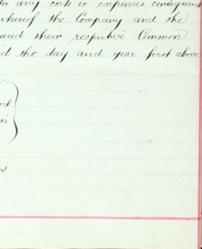 for any cost or expenses consequent
whereof the Company and the
their respective Common
the day and year first above